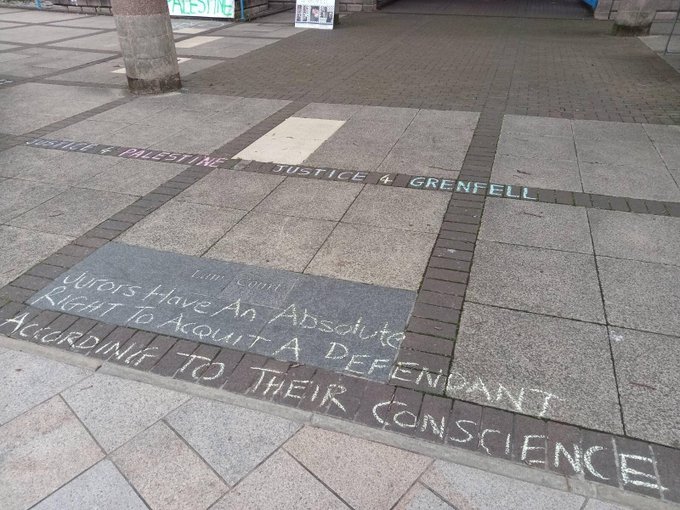 PALESTINE
JUSTICE 4 PALESTINE JUSTICE 4 GRENFELL
Law Court
Jurors Have An Absolute
RIGHT To Acquit A DEFENDANT
ACCORDING To THEIR CONSCIENCE